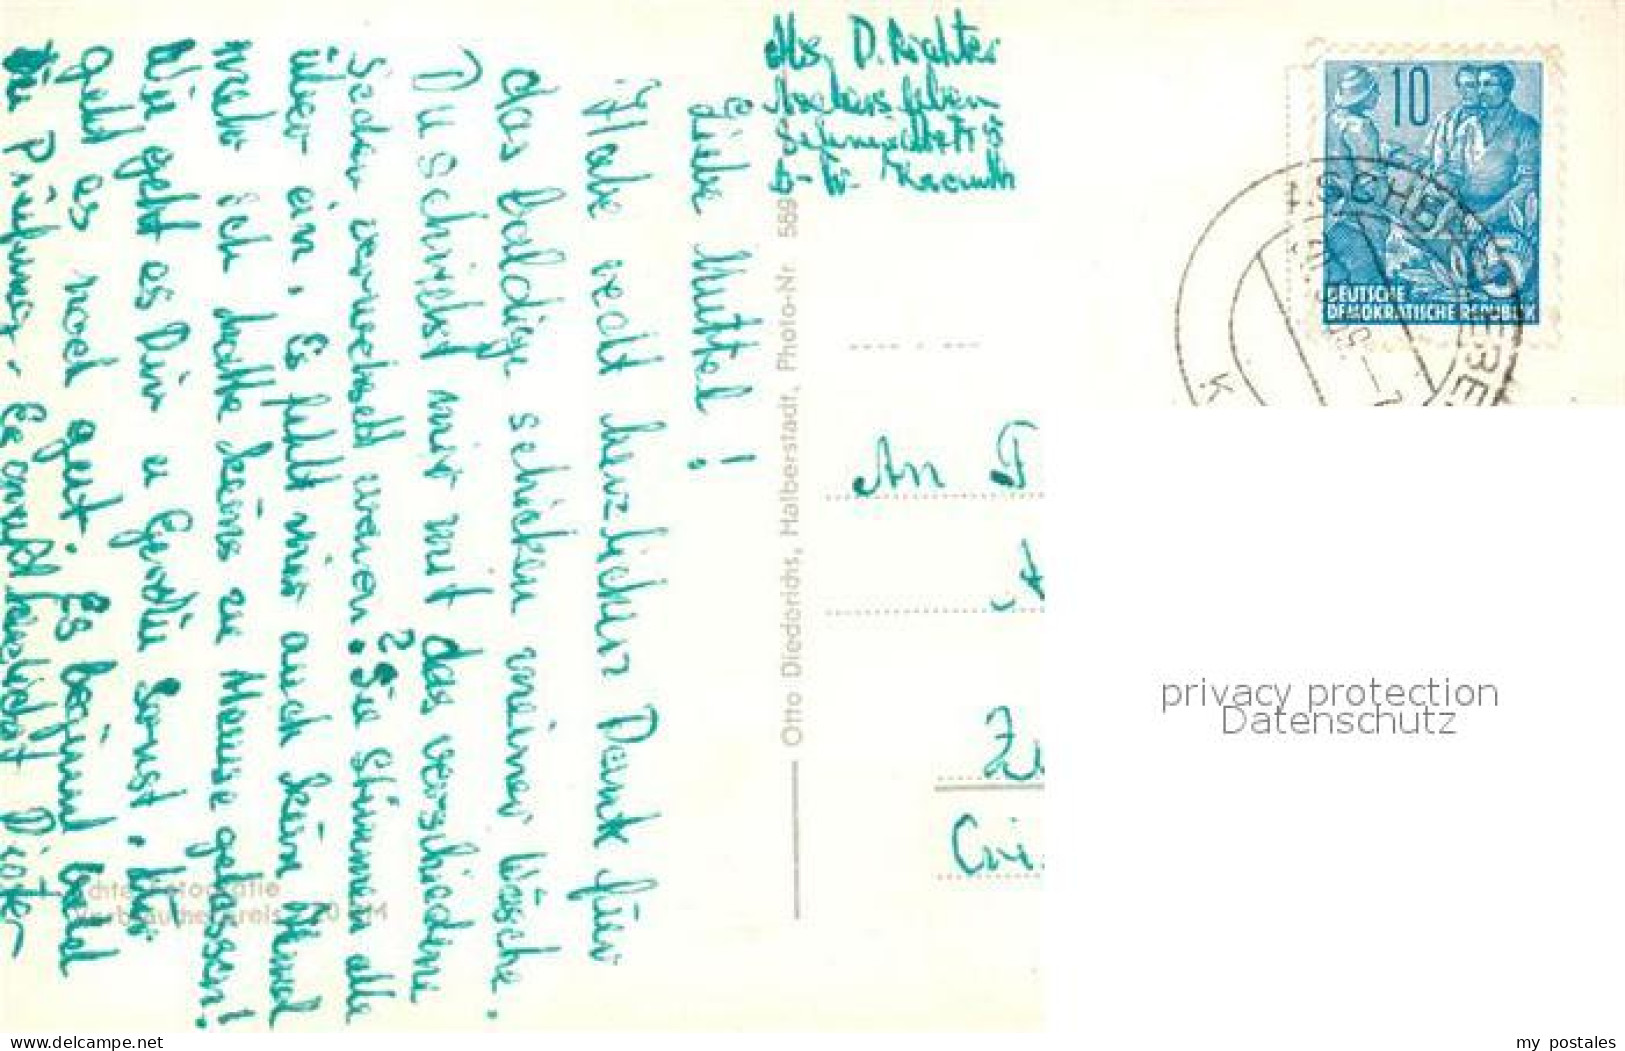 D. Richter
Aschersleben
Liebe Muttel!
Habe recht herzlichen Dank für
das baldige schicken meiner Wäsche.
Du schreibst mir mit das verschiedene
Sachen verwechselt waren. ? Sie stimmen alle
über ein. Es fehlt mir auch kein Hemd
mehr ich hatte keins zu Hause gelassen!
Wie geht es Dir u. sonst, uns
geht es noch gut. Es beginnt bald
die Prüfung. Es grüßt herzlichst Dieter
Echte Fotografie
Verbraucherpreis 20 DM
Otto Diederichs, Halberstadt, Photo-Nr. 569
10
DEUTSCHE
DEMOKRATISCHE REPUBLIK
5
ASCHERSLEBEN
K
An F
A
Zw
Cri
privacy protection
Datenschutz
www.delcampe.net
my_postales